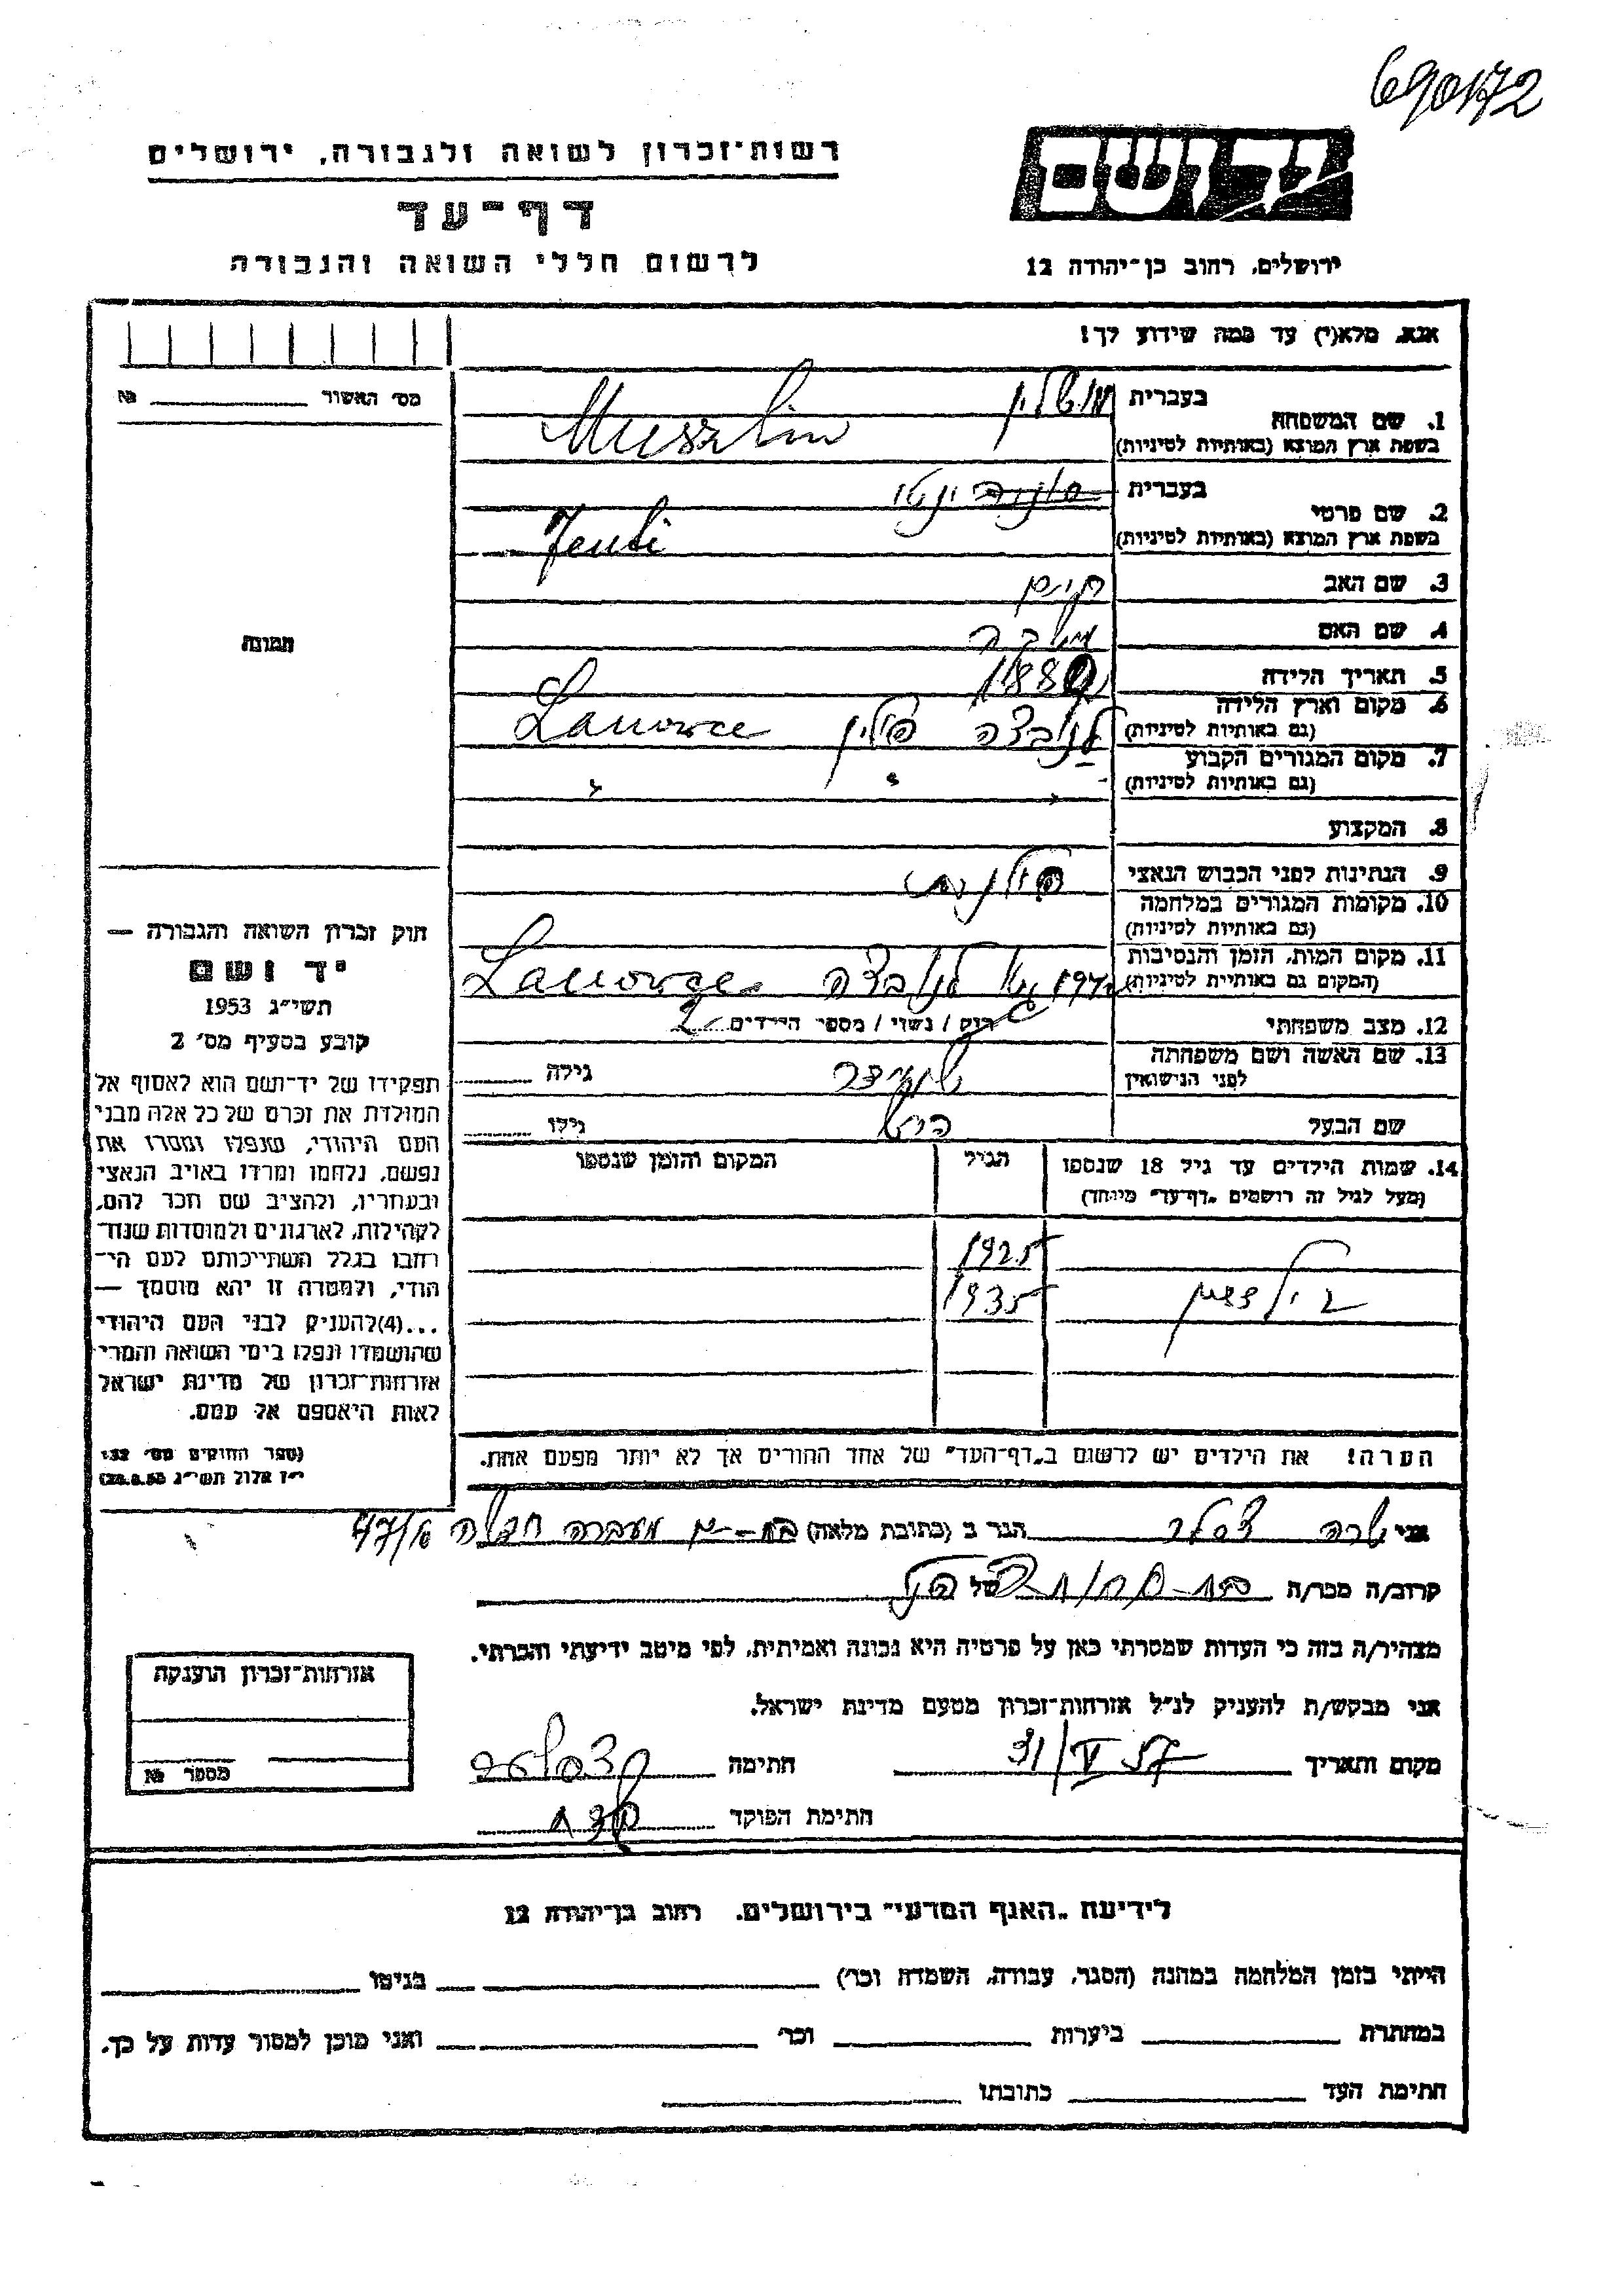 690172
רשות־זכרון לשואה ולגבורה, ירושלים
יד ושם
דף־עד
לרשום חללי השואה והגבורה
ירושלים, רחוב בן־יהודה 12
אנא, מלא(י) עד כמה שידוע לך!
מס׳ האשור № 
1. שם המשפחה
בעברית מושלין
בשפת ארץ המוצא (באותיות לטיניות) Muszlin
2. שם פרטי
בעברית ינטי
בשפת ארץ המוצא (באותיות לטיניות) Jenti
3. שם האב חיים
4. שם האם מלכה
5. תאריך הלידה
6. מקום וארץ הלידה (גם באותיות לטיניות) לנובצה פולין Lanowce
7. מקום המגורים הקבוע (גם באותיות לטיניות) " " "
8. המקצוע
9. הנתינות לפני הכבוש הנאצי פולנית
10. מקומות המגורים במלחמה (גם באותיות לטיניות)
11. מקום המות, הזמן והנסיבות (המקום גם באותיות לטיניות) לנובצה Lanowce
12. מצב משפחתי רוק / נשוי / מספר הילדים 2
13. שם האשה ושם משפחתה לפני הנישואין שנידר גילה
שם הבעל הרש גילו
תמונה
14. שמות הילדים עד גיל 18 שנספו (מעל לגיל זה רושמים „דף־עד” מיוחד)
הגיל
המקום והזמן שנספו
1925
1935
הערה! את הילדים יש לרשום ב„דף־העד” של אחד ההורים אך לא יותר מפעם אחת.
חוק זכרון השואה והגבורה —
יד ושם
תשי״ג 1953
קובע בסעיף מס׳ 2
תפקידו של יד־ושם הוא לאסוף אל
המולדת את זכרם של כל אלה מבני
העם היהודי, שנפלו ומסרו את
נפשם, נלחמו ומרדו באויב הנאצי
ובעוזריו, ולהציב שם וזכר להם,
לקהילות, לארגונים ולמוסדות שנח־
רבו בגלל השתייכותם לעם הי־
הודי, ולמטרה זו יהא מוסמך —
...(4) להעניק לבני העם היהודי
שהושמדו ונפלו בימי השואה והמרי
אזרחות־זכרון של מדינת ישראל
לאות היאספם אל עמם.
(ספר החוקים מס׳ 132
י״ז אלול תשי״ג 28.8.53)
אני שרה הגר ב (כתובת מלאה) בת-ים מעברה
קרוב/ה מכר/ה בת-אחות של הנ״ל
מצהיר/ה בזה כי העדות שמסרתי כאן על פרטיה היא נכונה ואמיתית, לפי מיטב ידיעתי והכרתי.
אני מבקש/ת להעניק לנ״ל אזרחות־זכרון מטעם מדינת ישראל.
מקום ותאריך 31/V 57 חתימה
חתימת הפוקד
אזרחות־זכרון הוענקה
מספר №
לידיעת „האגף המדעי” בירושלים, רחוב בן־יהודה 12
הייתי בזמן המלחמה במחנה (הסגר, עבודה, השמדה וכו׳) בגיטו
במחתרת ביערות וכו׳ ואני מוכן למסור עדות על כך.
חתימת העד כתובתו